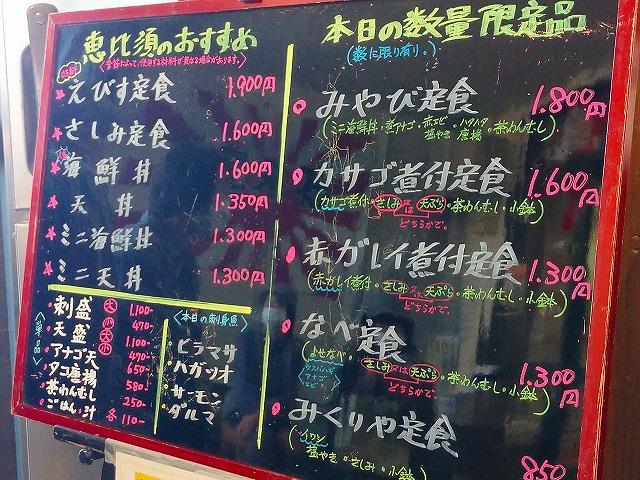 恵比須のおすすめ
<季節によって、使用する材料が異なる場合があります。>
えびす定食 1.900円
さしみ定食 1.600円
海鮮丼 1.600円
天丼 1.350円
ミニ海鮮丼 1.300円
ミニ天丼 1.300円
<単品>
刺盛 大 1,100-
小 470-
天盛 大 1,100-
小 470-
アナゴ天 650-
タコ唐揚 580-
茶わんむし 250-
ごはん・汁 各110-
<本日の刺身魚>
・ヒラマサ
・ハガツオ
・サーモン
・ダルマ
本日の数量限定品
(数に限り有り。)
みやび定食 1.800円
(ミニ海鮮丼・煮アナゴ・赤エビ塩やき・ハタハタ唐揚・茶わんむし)
カサゴ煮付定食 1.600円
(カサゴ煮付・さしみ又は天ぷら・茶わんむし・小鉢)
どちらかで。
赤ガレイ煮付定食 1.300円
(赤ガレイ煮付・さしみ又は天ぷら・茶わんむし・小鉢)
どちらかで。
なべ定食 1.300円
(よせなべ・さしみ又は天ぷら・茶わんむし・小鉢)
どちらかで。
アナゴ
エビ
みくりや定食 850
(イワシ塩やき・さしみ・小鉢)